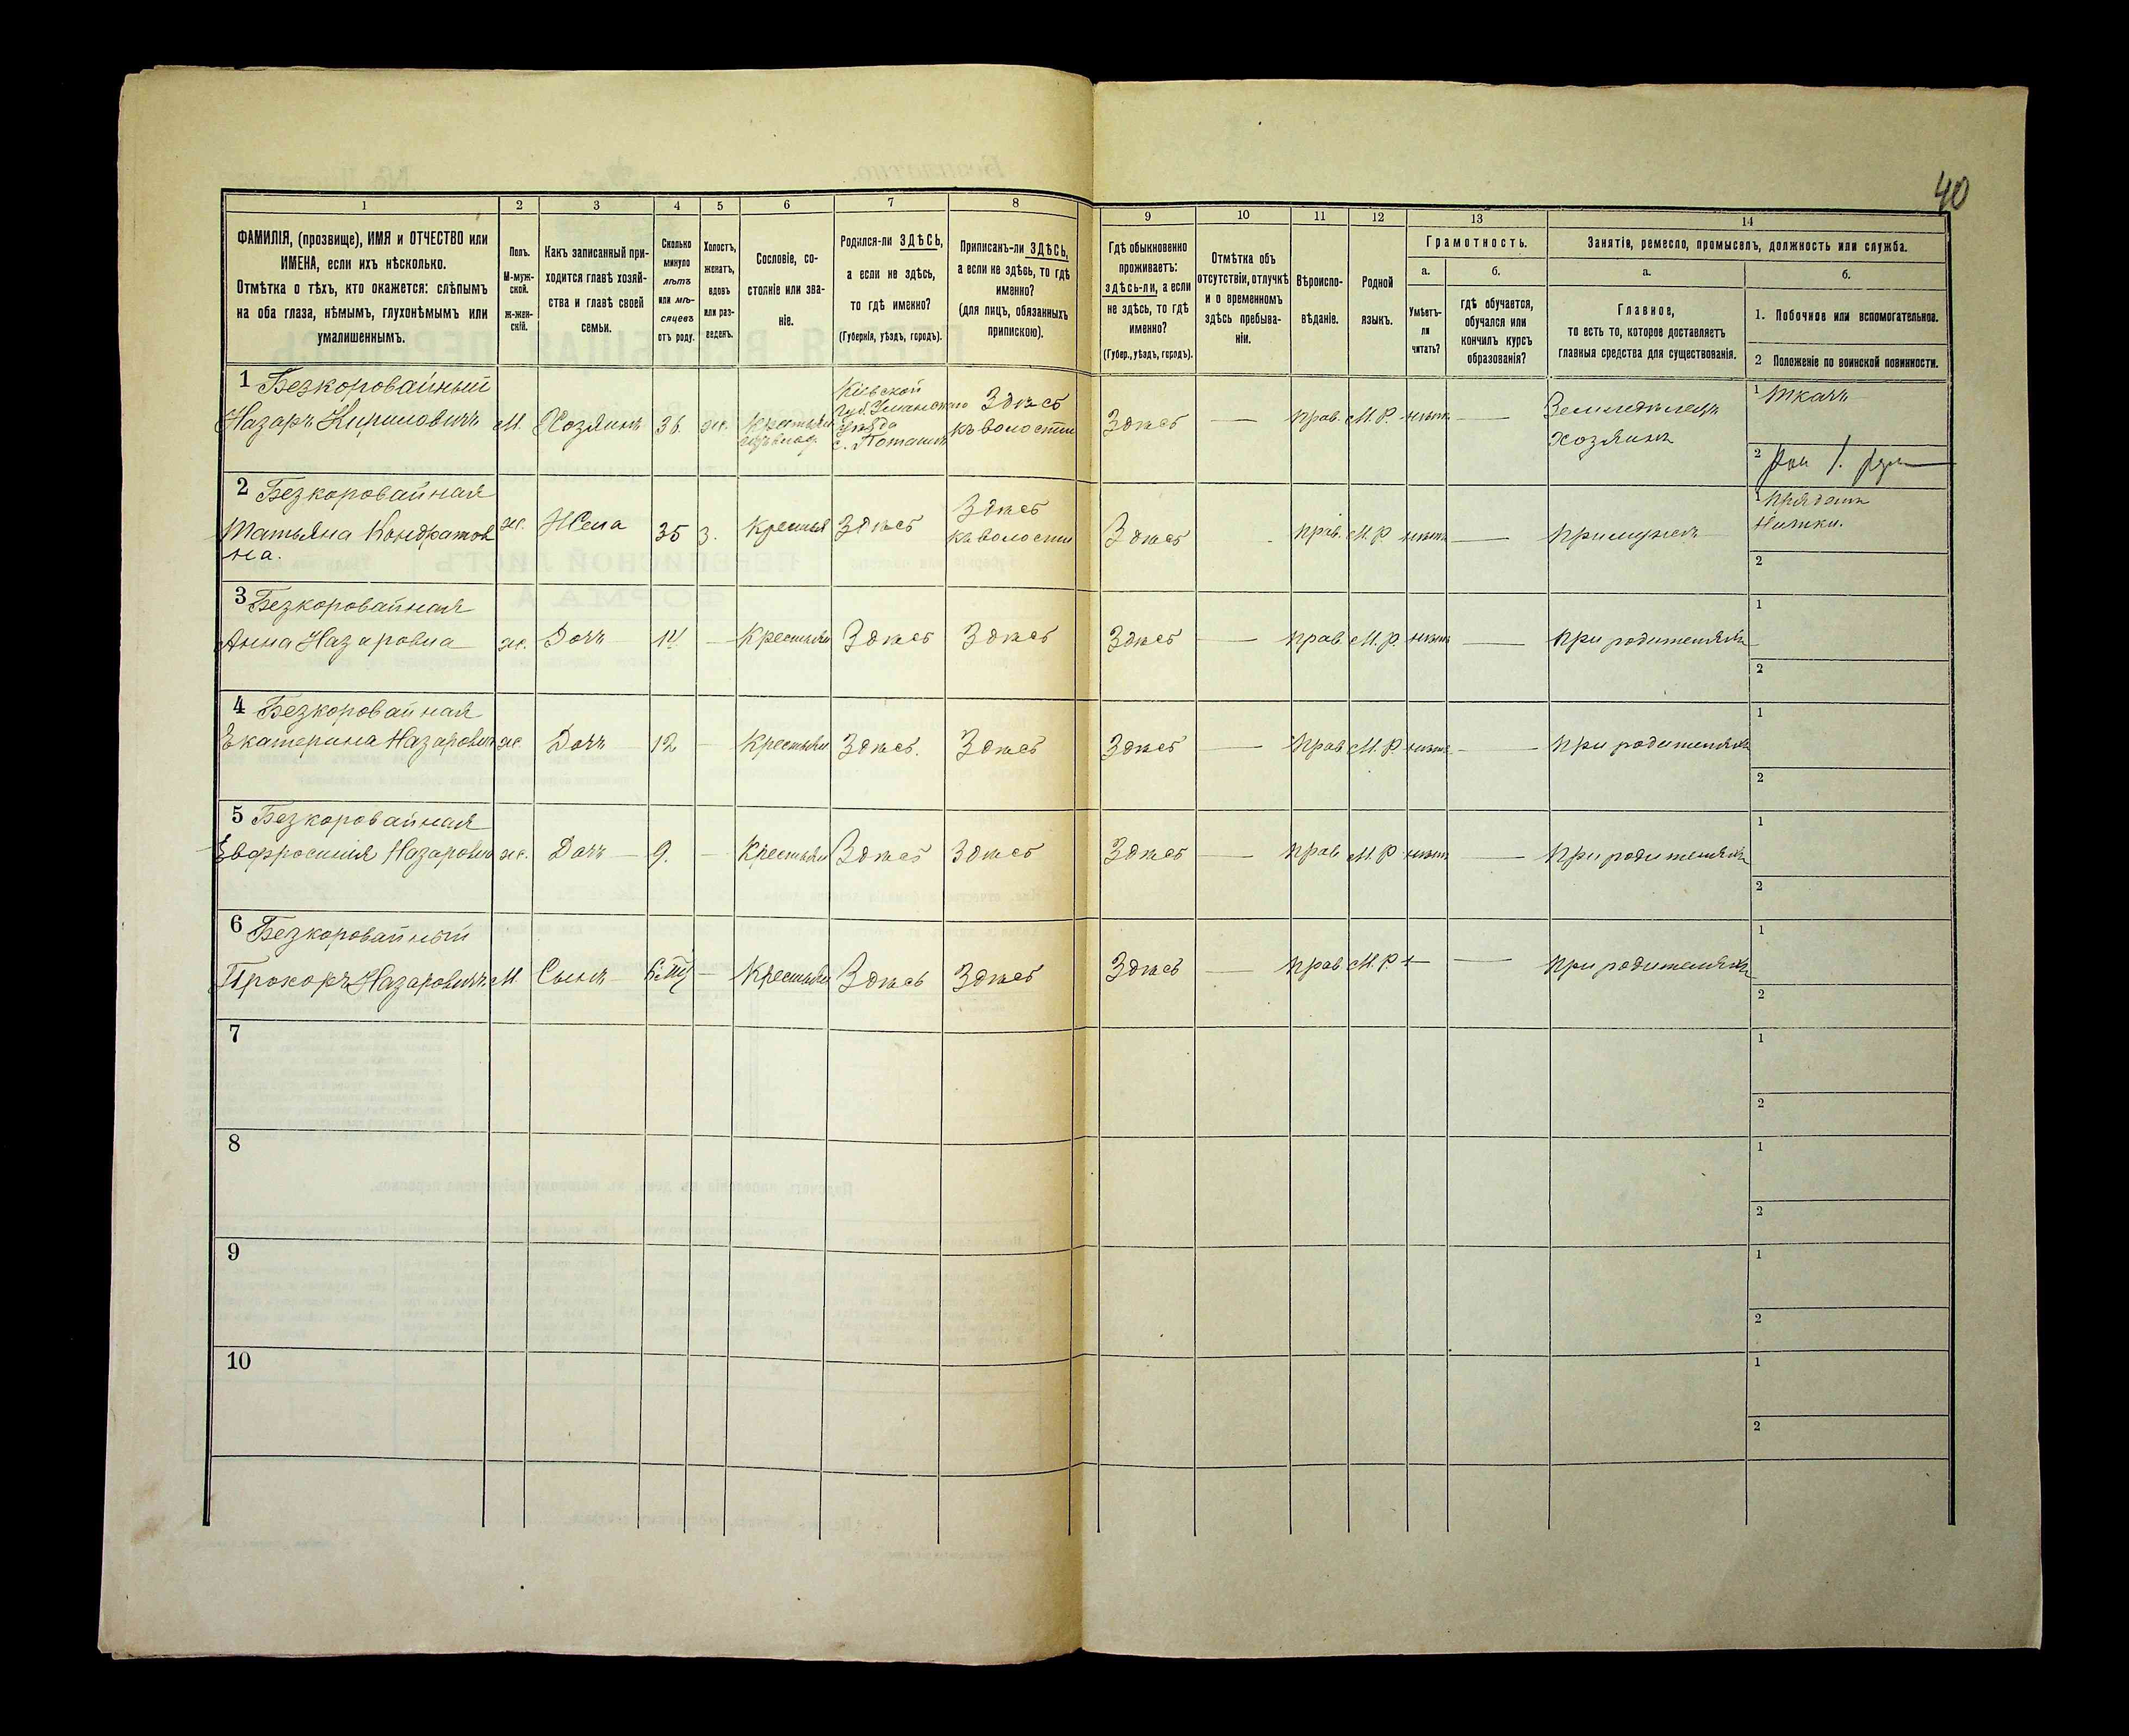 40
1 2 3 4 5 6 7 8 9 10 11 12 13 14
ФАМИЛІЯ, (прозвище), ИМЯ и ОТЧЕСТВО или
ИМЕНА, если ихъ нѣсколько.
Отмѣтка о тѣхъ, кто окажется: слѣпымъ
на оба глаза, нѣмымъ, глухонѣмымъ или
умалишеннымъ.
Полъ.
М-муж-
ской.
ж-жен-
скій.
Какъ записанный при-
ходится главѣ хозяй-
ства и главѣ своей
семьи.
Сколько
минуло
лѣтъ
или мѣ-
сяцевъ
отъ роду.
Холостъ,
женатъ,
вдовъ
или раз-
веденъ.
Сословіе, со-
стояніе или зва-
ніе.
Родился-ли ЗДѢСЬ,
а если не здѣсь,
то гдѣ именно?
(Губернія, уѣздъ, городъ).
Приписанъ-ли ЗДѢСЬ,
а если не здѣсь, то гдѣ
именно?
(для лицъ, обязанныхъ
припискою).
Гдѣ обыкновенно
проживаетъ:
здѣсь-ли, а если
не здѣсь, то гдѣ
именно?
(Губер., уѣздъ, городъ).
Отмѣтка объ
отсутствіи, отлучкѣ
и о временномъ
здѣсь пребыва-
ніи.
Вѣроиспо-
вѣданіе.
Родной
языкъ.
Грамотность.
а.
Умѣетъ-
ли
читать?
б.
гдѣ обучается,
обучался или
кончилъ курсъ
образованія?
Занятіе, ремесло, промыселъ, должность или служба.
а.
Главное,
то есть то, которое доставляетъ
главныя средства для существованія.
б.
1. Побочное или вспомогательное.
2 Положеніе по воинской повинности.
1 Безкоровайный
Назаръ Кириловичъ
М.
Хозяинъ
36
же.
Кіевской
Губ. Уманскаго
Уѣзда
с. Поташъ
Здѣсь
къ волости
Здѣсь
—
прав.
М.Р.
нѣтъ
—
Земледѣлецъ
хозяинъ
1 Ткачъ
2
2 Безкоровайная
Татьяна Кондратов
на.
же.
Жена
35
З.
Здѣсь
Здѣсь
къ волости
Здѣсь
прав.
М.Р.
нѣтъ
—
при мужѣ
1 Прядетъ
Нитки.
2
3 Безкоровайная
Анна Назаровна
же.
Дочь
14
—
Крестьян
Здѣсь
Здѣсь
Здѣсь
—
прав
М.Р.
нѣтъ
—
при родителяхъ
1
2
4 Безкоровайная
Екатерина Назаровн
же.
Дочь
12
—
Крестьян
Здѣсь.
Здѣсь
Здѣсь
—
прав
М.Р.
нѣтъ
—
при родителяхъ
1
2
5 Безкоровайная
Евфросинія Назаровн
же.
Дочь
9.
—
Крестьян
Здѣсь
Здѣсь
Здѣсь
—
прав
М.Р.
нѣтъ
—
при родителяхъ
1
2
6 Безкоровайный
Прокоръ Назаровичъ
М
Сынъ
—
Крестьян
Здѣсь
Здѣсь
Здѣсь
—
прав
М.Р.
—
—
при родителяхъ
1
2
7
1
2
8
1
2
9
1
2
10
1
2